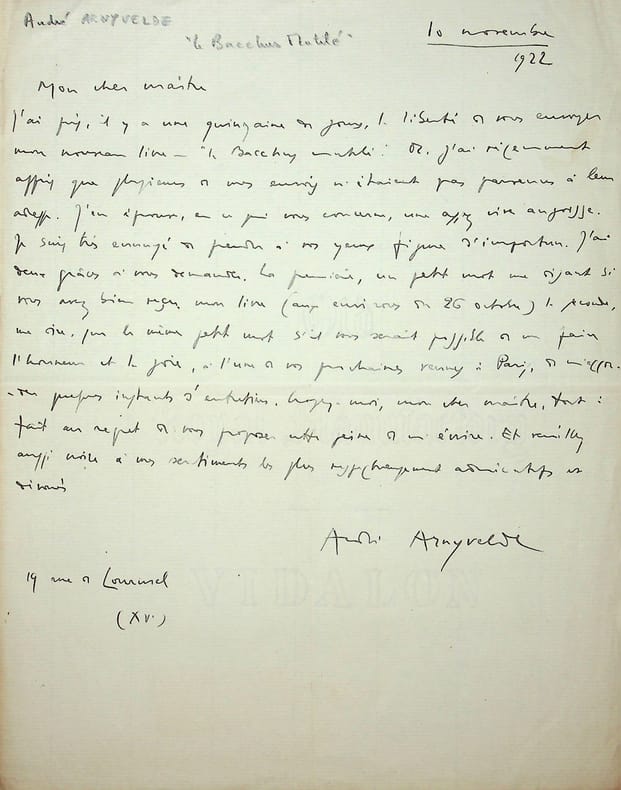 André ARNYVELDE
"le Bacchus Mutilé"
10 novembre
1922
Mon cher maître
J'ai pris, il y a une quinzaine de jours, la liberté de vous envoyer
mon nouveau livre – "le Bacchus mutilé". Or, j'ai récemment
appris que plusieurs de mes envois n'étaient pas parvenus à leur
adresse. J'en éprouve, en ce qui vous concerne, une assez vive angoisse.
Je suis très ennuyé de prendre à vos yeux figure d'importun. J'ai
deux grâces à vous demander. La première, un petit mot me disant si
vous avez bien reçu mon livre (aux environs du 26 octobre) la seconde,
me dire, par le même petit mot s'il vous serait possible de me faire
l'honneur et la joie, à l'une de vos prochaines venues à Paris, de m'accor-
-der quelques instants d'entretien. Croyez-moi, mon cher maître, tout à
fait au regret de vous proposer cette peine de m'écrire. Et veuillez
aussi croire à mes sentiments les plus respectueusement admiratifs et
dévoués
André Arnyvelde
19 rue de Lourmel
(XV.)
VIDALON